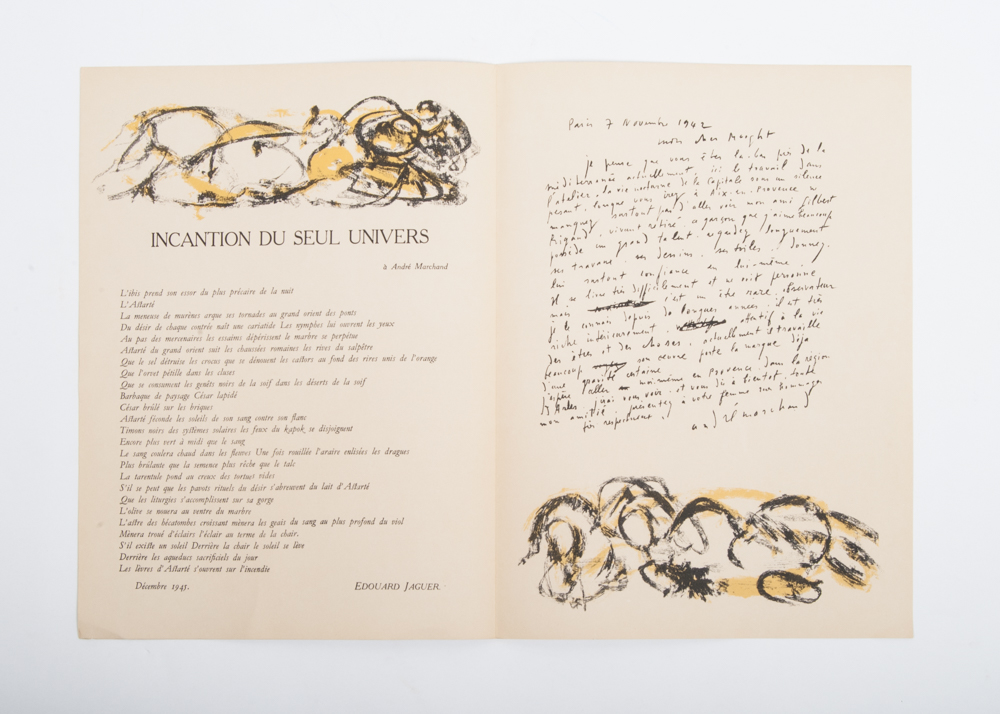 INCANTION DU SEUL UNIVERS
à André Marchand
L'ibis prend son essor du plus précaire de la nuit
L'Astarté
La meneuse de murènes arque ses tornades au grand orient des ponts
Du désir de chaque contrée naît une cariatide Les nymphes lui ouvrent les yeux
Au pas des mercenaires les essaims dépérissent le marbre se perpétue
Astarté du grand orient suit les chaussées romaines les rires du salpêtre
Que le sel détruise les crocus que se dénouent les castors au fond des rires unis de l'orange
Que l'orvet pétille dans les cluses
Que se consument les genêts noirs de la soif dans les déserts de la soif
Barbaque de paysage César lapidé
César brûlé sur les briques
Astarté féconde les soleils de son sang contre son flanc
Timons noirs des systèmes solaires les feux du kapok se disjoignent
Encore plus vert à midi que le sang
Le sang coulera chaud dans les fleuves Une fois rouillée l'araire enlisées les dragues
Plus brûlante que la semence plus rêche que le talc
La tarentule pond au creux des tortues vides
S'il se peut que les pavots rituels du désir s'abreuvent du lait d'Astarté
Que les liturgies s'accomplissent sur sa gorge
L'olive se nouera au ventre du marbre
L'astre des hécatombes croissant mènera les geais du sang au plus profond du viol
Mènera troué d'éclairs l'éclair au terme de la chair.
S'il existe un soleil Derrière la chair le soleil se lève
Derrière les aqueducs sacrificiels du jour
Les lèvres d'Astarté s'ouvrent sur l'incendie
Décembre 1945. EDOUARD JAGUER.
Paris 7 Novembre 1942
mon cher Maeght
je pense que vous êtes là-bas près de la
méditerranée actuellement. ici le travail dans
l'atelier, la vie nocturne de la Capitale dans un silence
pesant, lorsque vous irez à Aix-en-Provence ne
manquez surtout pas d'aller voir mon ami Gilbert
Rigaud, vivant retiré. ce garçon que j'aime beaucoup
possède un grand talent. regardez longuement
ses travaux, ses dessins, ses toiles. Donnez-
lui surtout confiance en lui-même.
Il se livre très difficilement et ne voit personne
mais c'est un être rare, observateur
je le connais depuis de longues années, il est très
riche intérieurement, attentif à la vie
des êtres et des choses. actuellement il travaille
beaucoup son oeuvre porte la marque déjà
d'une gravité certaine.
j'espère aller moi-même en Provence, dans la région
d'Arles j'irai vous voir. et vous dis à bientôt, toute
mon amitié. présentez à votre femme mes hommages
très respectueux.
andré marchand